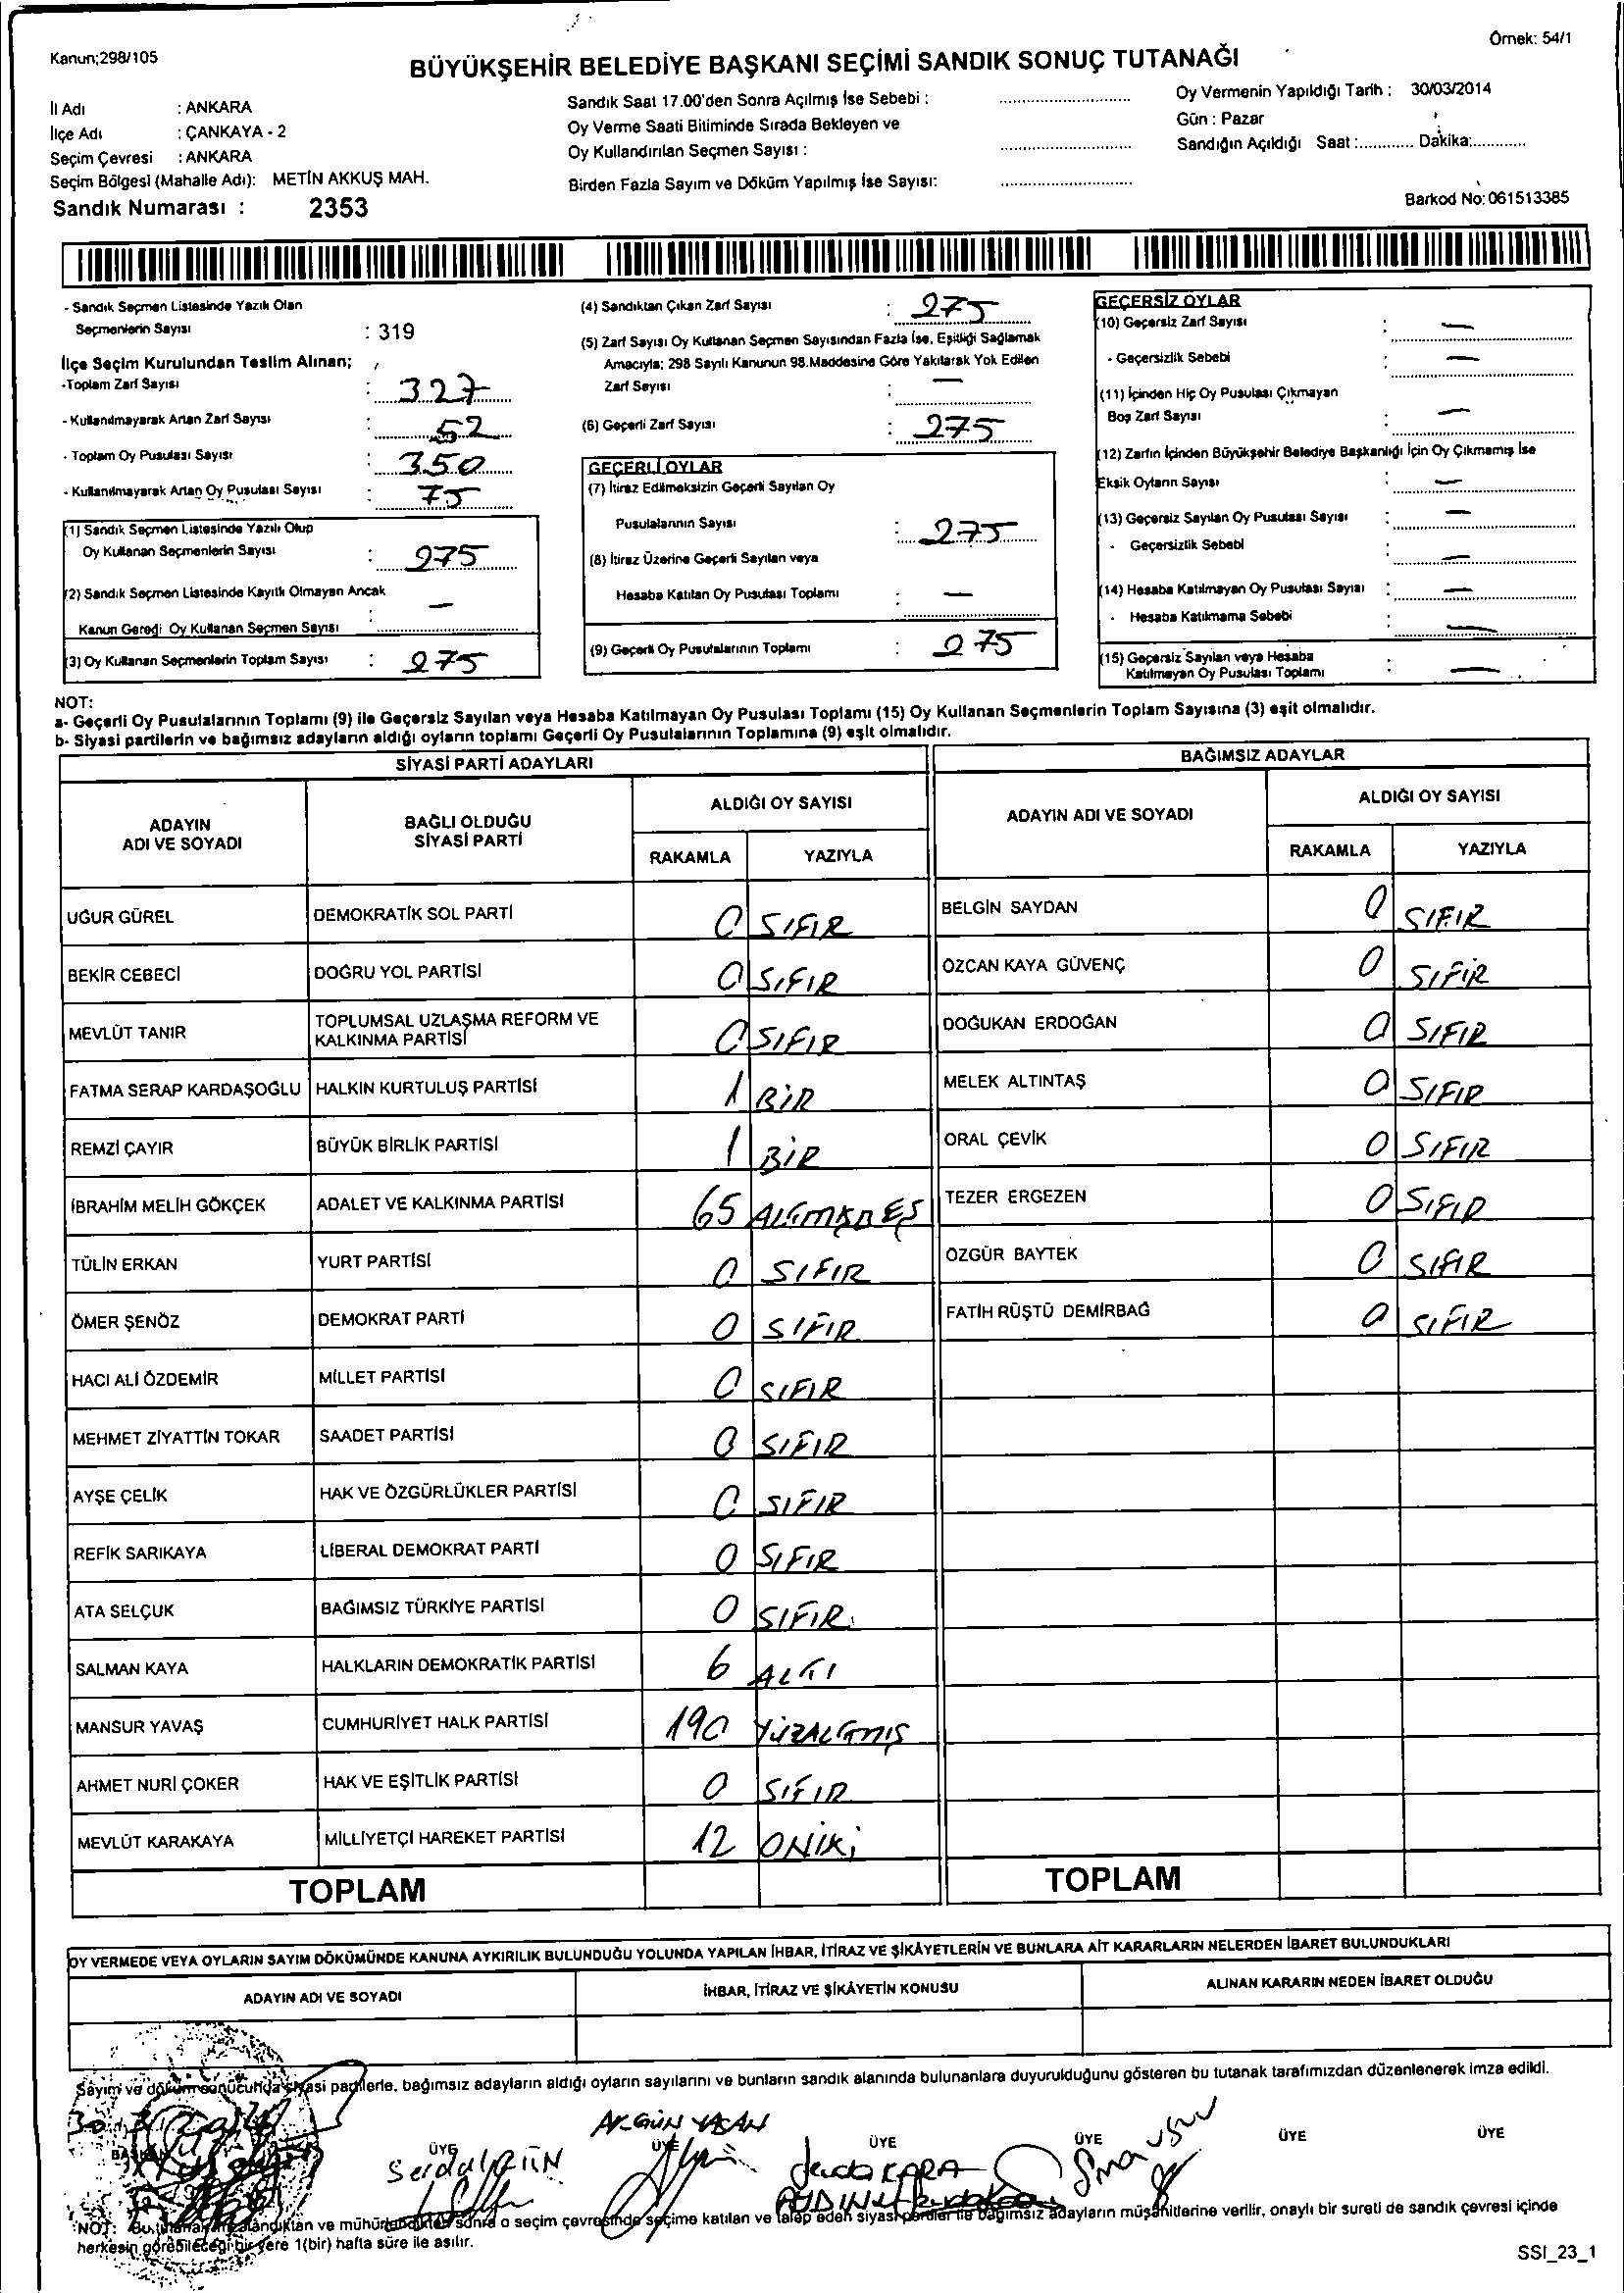 Kanun;298/105
Örnek: 54/1
BÜYÜKŞEHİR BELEDİYE BAŞKANI SEÇİMİ SANDIK SONUÇ TUTANAĞI
İl Adı : ANKARA
İlçe Adı : ÇANKAYA - 2
Seçim Çevresi : ANKARA
Seçim Bölgesi (Mahalle Adı): METİN AKKUŞ MAH.
Sandık Numarası : 2353
Sandık Saat 17.00'den Sonra Açılmış İse Sebebi :
Oy Verme Saati Bitiminde Sırada Bekleyen ve
Oy Kullandırılan Seçmen Sayısı :
Birden Fazla Sayım ve Döküm Yapılmış İse Sayısı:
Oy Vermenin Yapıldığı Tarih : 30/03/2014
Gün : Pazar
Sandığın Açıldığı Saat :............ Dakika:............
Barkod No: 061513385
- Sandık Seçmen Listesinde Yazılı Olan
Seçmenlerin Sayısı : 319
İlçe Seçim Kurulundan Teslim Alınan;
-Toplam Zarf Sayısı : 327
- Kullanılmayarak Artan Zarf Sayısı : 52
- Toplam Oy Pusulası Sayısı : 350
- Kullanılmayarak Artan Oy Pusulası Sayısı : 75
(1) Sandık Seçmen Listesinde Yazılı Olup
Oy Kullanan Seçmenlerin Sayısı : 275
(2) Sandık Seçmen Listesinde Kayıtlı Olmayan Ancak
Kanun Gereği Oy Kullanan Seçmen Sayısı : —
(3) Oy Kullanan Seçmenlerin Toplam Sayısı : 275
(4) Sandıktan Çıkan Zarf Sayısı : 275
(5) Zarf Sayısı Oy Kullanan Seçmen Sayısından Fazla İse, Eşitliği Sağlamak
Amacıyla; 298 Sayılı Kanunun 98.Maddesine Göre Yakılarak Yok Edilen
Zarf Sayısı : —
(6) Geçerli Zarf Sayısı : 275
GEÇERLİ OYLAR
(7) İtiraz Edilmeksizin Geçerli Sayılan Oy
Pusulalarının Sayısı : 275
(8) İtiraz Üzerine Geçerli Sayılan veya
Hesaba Katılan Oy Pusulası Toplamı : —
(9) Geçerli Oy Pusulalarının Toplamı : 275
GEÇERSİZ OYLAR
(10) Geçersiz Zarf Sayısı : —
- Geçersizlik Sebebi : —
(11) İçinden Hiç Oy Pusulası Çıkmayan
Boş Zarf Sayısı : —
(12) Zarfın İçinden Büyükşehir Belediye Başkanlığı İçin Oy Çıkmamış İse
Eksik Oyların Sayısı : —
(13) Geçersiz Sayılan Oy Pusulası Sayısı : —
- Geçersizlik Sebebi : —
(14) Hesaba Katılmayan Oy Pusulası Sayısı : —
- Hesaba Katılmama Sebebi : —
(15) Geçersiz Sayılan veya Hesaba
Katılmayan Oy Pusulası Toplamı : —
NOT:
a- Geçerli Oy Pusulalarının Toplamı (9) ile Geçersiz Sayılan veya Hesaba Katılmayan Oy Pusulası Toplamı (15) Oy Kullanan Seçmenlerin Toplam Sayısına (3) eşit olmalıdır.
b- Siyasi partilerin ve bağımsız adayların aldığı oyların toplamı Geçerli Oy Pusulalarının Toplamına (9) eşit olmalıdır.
SİYASİ PARTİ ADAYLARI
ADAYIN ADI VE SOYADI
BAĞLI OLDUĞU SİYASİ PARTİ
ALDIĞI OY SAYISI
RAKAMLA YAZIYLA
UĞUR GÜREL DEMOKRATİK SOL PARTİ 0 SIFIR
BEKİR CEBECİ DOĞRU YOL PARTİSİ 0 SIFIR
MEVLÜT TANIR TOPLUMSAL UZLAŞMA REFORM VE KALKINMA PARTİSİ 0 SIFIR
FATMA SERAP KARDAŞOĞLU HALKIN KURTULUŞ PARTİSİ 1 BİR
REMZİ ÇAYIR BÜYÜK BİRLİK PARTİSİ 1 BİR
İBRAHİM MELİH GÖKÇEK ADALET VE KALKINMA PARTİSİ 65 ALTMIŞBEŞ
TÜLİN ERKAN YURT PARTİSİ 0 SIFIR
ÖMER ŞENÖZ DEMOKRAT PARTİ 0 SIFIR
HACI ALİ ÖZDEMİR MİLLET PARTİSİ 0 SIFIR
MEHMET ZİYATTİN TOKAR SAADET PARTİSİ 0 SIFIR
AYŞE ÇELİK HAK VE ÖZGÜRLÜKLER PARTİSİ 0 SIFIR
REFİK SARIKAYA LİBERAL DEMOKRAT PARTİ 0 SIFIR
ATA SELÇUK BAĞIMSIZ TÜRKİYE PARTİSİ 0 SIFIR
SALMAN KAYA HALKLARIN DEMOKRATİK PARTİSİ 6 ALTI
MANSUR YAVAŞ CUMHURİYET HALK PARTİSİ 190 YÜZALTMIŞ
AHMET NURİ ÇOKER HAK VE EŞİTLİK PARTİSİ 0 SIFIR
MEVLÜT KARAKAYA MİLLİYETÇİ HAREKET PARTİSİ 12 ONİKİ
TOPLAM
BAĞIMSIZ ADAYLAR
ADAYIN ADI VE SOYADI
ALDIĞI OY SAYISI
RAKAMLA YAZIYLA
BELGİN SAYDAN 0 SIFIR
ÖZCAN KAYA GÜVENÇ 0 SIFIR
DOĞUKAN ERDOĞAN 0 SIFIR
MELEK ALTINTAŞ 0 SIFIR
ORAL ÇEVİK 0 SIFIR
TEZER ERGEZEN 0 SIFIR
ÖZGÜR BAYTEK 0 SIFIR
FATİH RÜŞTÜ DEMİRBAĞ 0 SIFIR
TOPLAM
OY VERMEDE VEYA OYLARIN SAYIM DÖKÜMÜNDE KANUNA AYKIRILIK BULUNDUĞU YOLUNDA YAPILAN İHBAR, İTİRAZ VE ŞİKÂYETLERİN VE BUNLARA AİT KARARLARIN NELERDEN İBARET BULUNDUKLARI
ADAYIN ADI VE SOYADI
İHBAR, İTİRAZ VE ŞİKÂYETİN KONUSU
ALINAN KARARIN NEDEN İBARET OLDUĞU
Sayım ve döküm sonucunda siyasi partilerle, bağımsız adayların aldığı oyların sayılarını ve bunların sandık alanında bulunanlara duyurulduğunu gösteren bu tutanak tarafımızdan düzenlenerek imza edildi.
BAŞKAN ÜYE ÜYE ÜYE ÜYE ÜYE ÜYE
KARA
NOT: Bu tutanak imzalandıktan ve mühürlendikten sonra o seçim çevresinde seçime katılan ve talep eden siyasi partiler ile bağımsız adayların müşahitlerine verilir, onaylı bir sureti de sandık çevresi içinde
herkesin görebileceği bir yere 1(bir) hafta süre ile asılır.
SSI_23_1